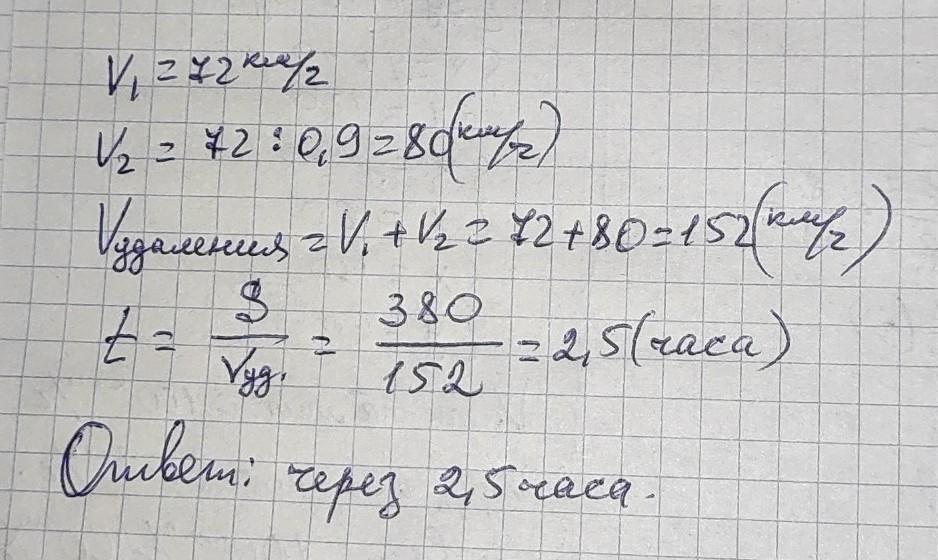 V₁ = 72 км/ч
V₂ = 72 : 0,9 = 80 (км/ч)
Vудаления = V₁ + V₂ = 72 + 80 = 152 (км/ч)
t = S/Vуд. = 380/152 = 2,5 (часа)
Ответ: через 2,5 часа.